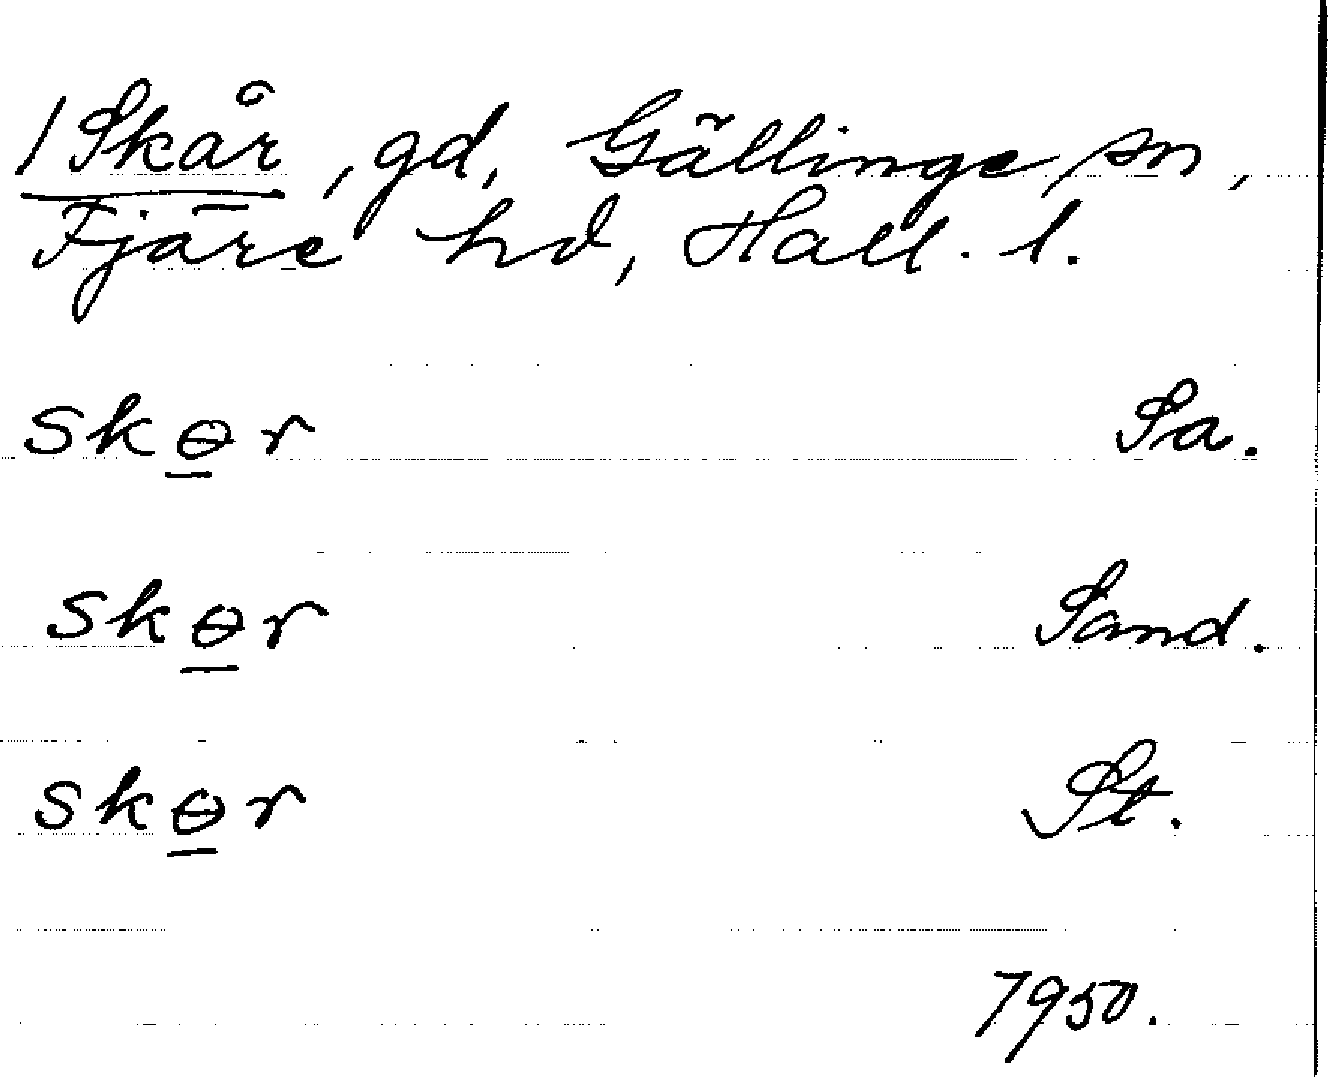 / Skår, gd, Gällinge sn,
Fjäre hd, Hall. l.
skɵr Sa.
skɵr Sand.
skɵr St.
1950.